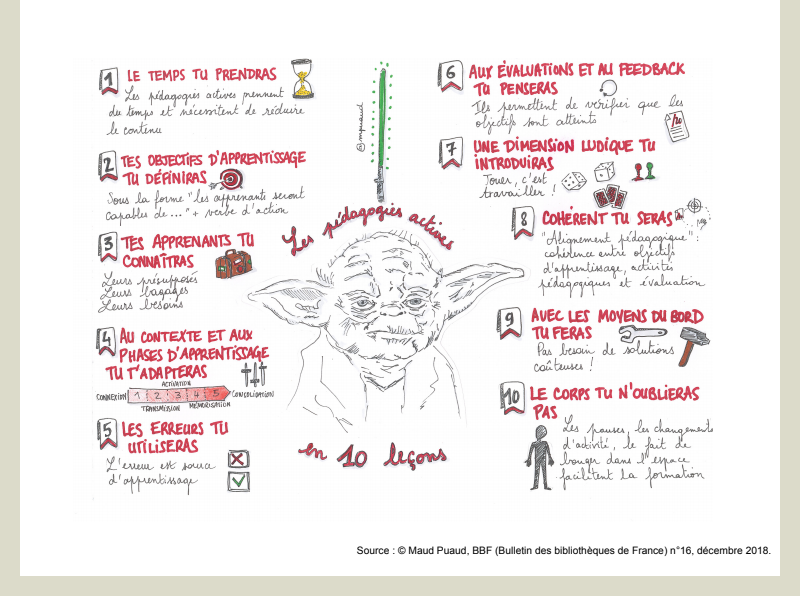 1 LE TEMPS TU PRENDRAS
Les pédagogies actives prennent
du temps et nécessitent de réduire
le contenu
2 TES OBJECTIFS D'APPRENTISSAGE
TU DÉFINIRAS
Sous la forme "les apprenants seront
capables de..." + verbe d'action
3 TES APPRENANTS TU
CONNAÎTRAS
Leurs présupposés
Leurs bagages
Leurs besoins
4 AU CONTEXTE ET AUX
PHASES D'APPRENTISSAGE
TU T'ADAPTERAS
ACTIVATION
CONNEXION 1 2 3 4 5 CONSOLIDATION
TRANSMISSION MÉMORISATION
5 LES ERREURS TU
UTILISERAS
L'erreur est source
d'apprentissage
@mpuaud
Les pédagogies actives
en 10 leçons
6 AUX ÉVALUATIONS ET AU FEEDBACK
TU PENSERAS
Ils permettent de vérifier que les
objectifs sont atteints
7 UNE DIMENSION LUDIQUE TU
INTRODUIRAS
Jouer, c'est
travailler !
8 COHÉRENT TU SERAS
"Alignement pédagogique" :
cohérence entre objectifs
d'apprentissage, activités
pédagogiques et évaluation
9 AVEC LES MOYENS DU BORD
TU FERAS
Pas besoin de solutions
coûteuses !
10 LE CORPS TU N'OUBLIERAS
PAS
Les pauses, les changements
d'activité, le fait de
bouger dans l'espace
facilitent la formation
Source : © Maud Puaud, BBF (Bulletin des bibliothèques de France) n°16, décembre 2018.